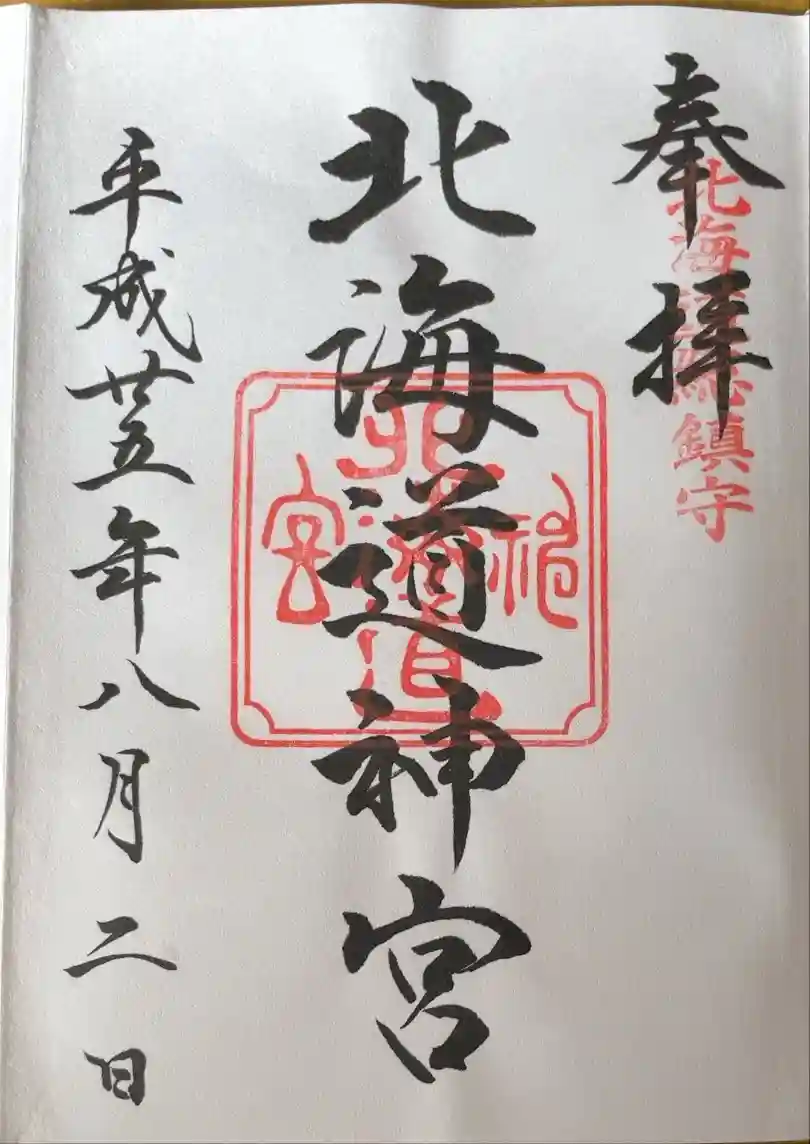 奉拝
北海道総鎮守
北海道神宮
北海道
神
宮
平成廿五年八月二日